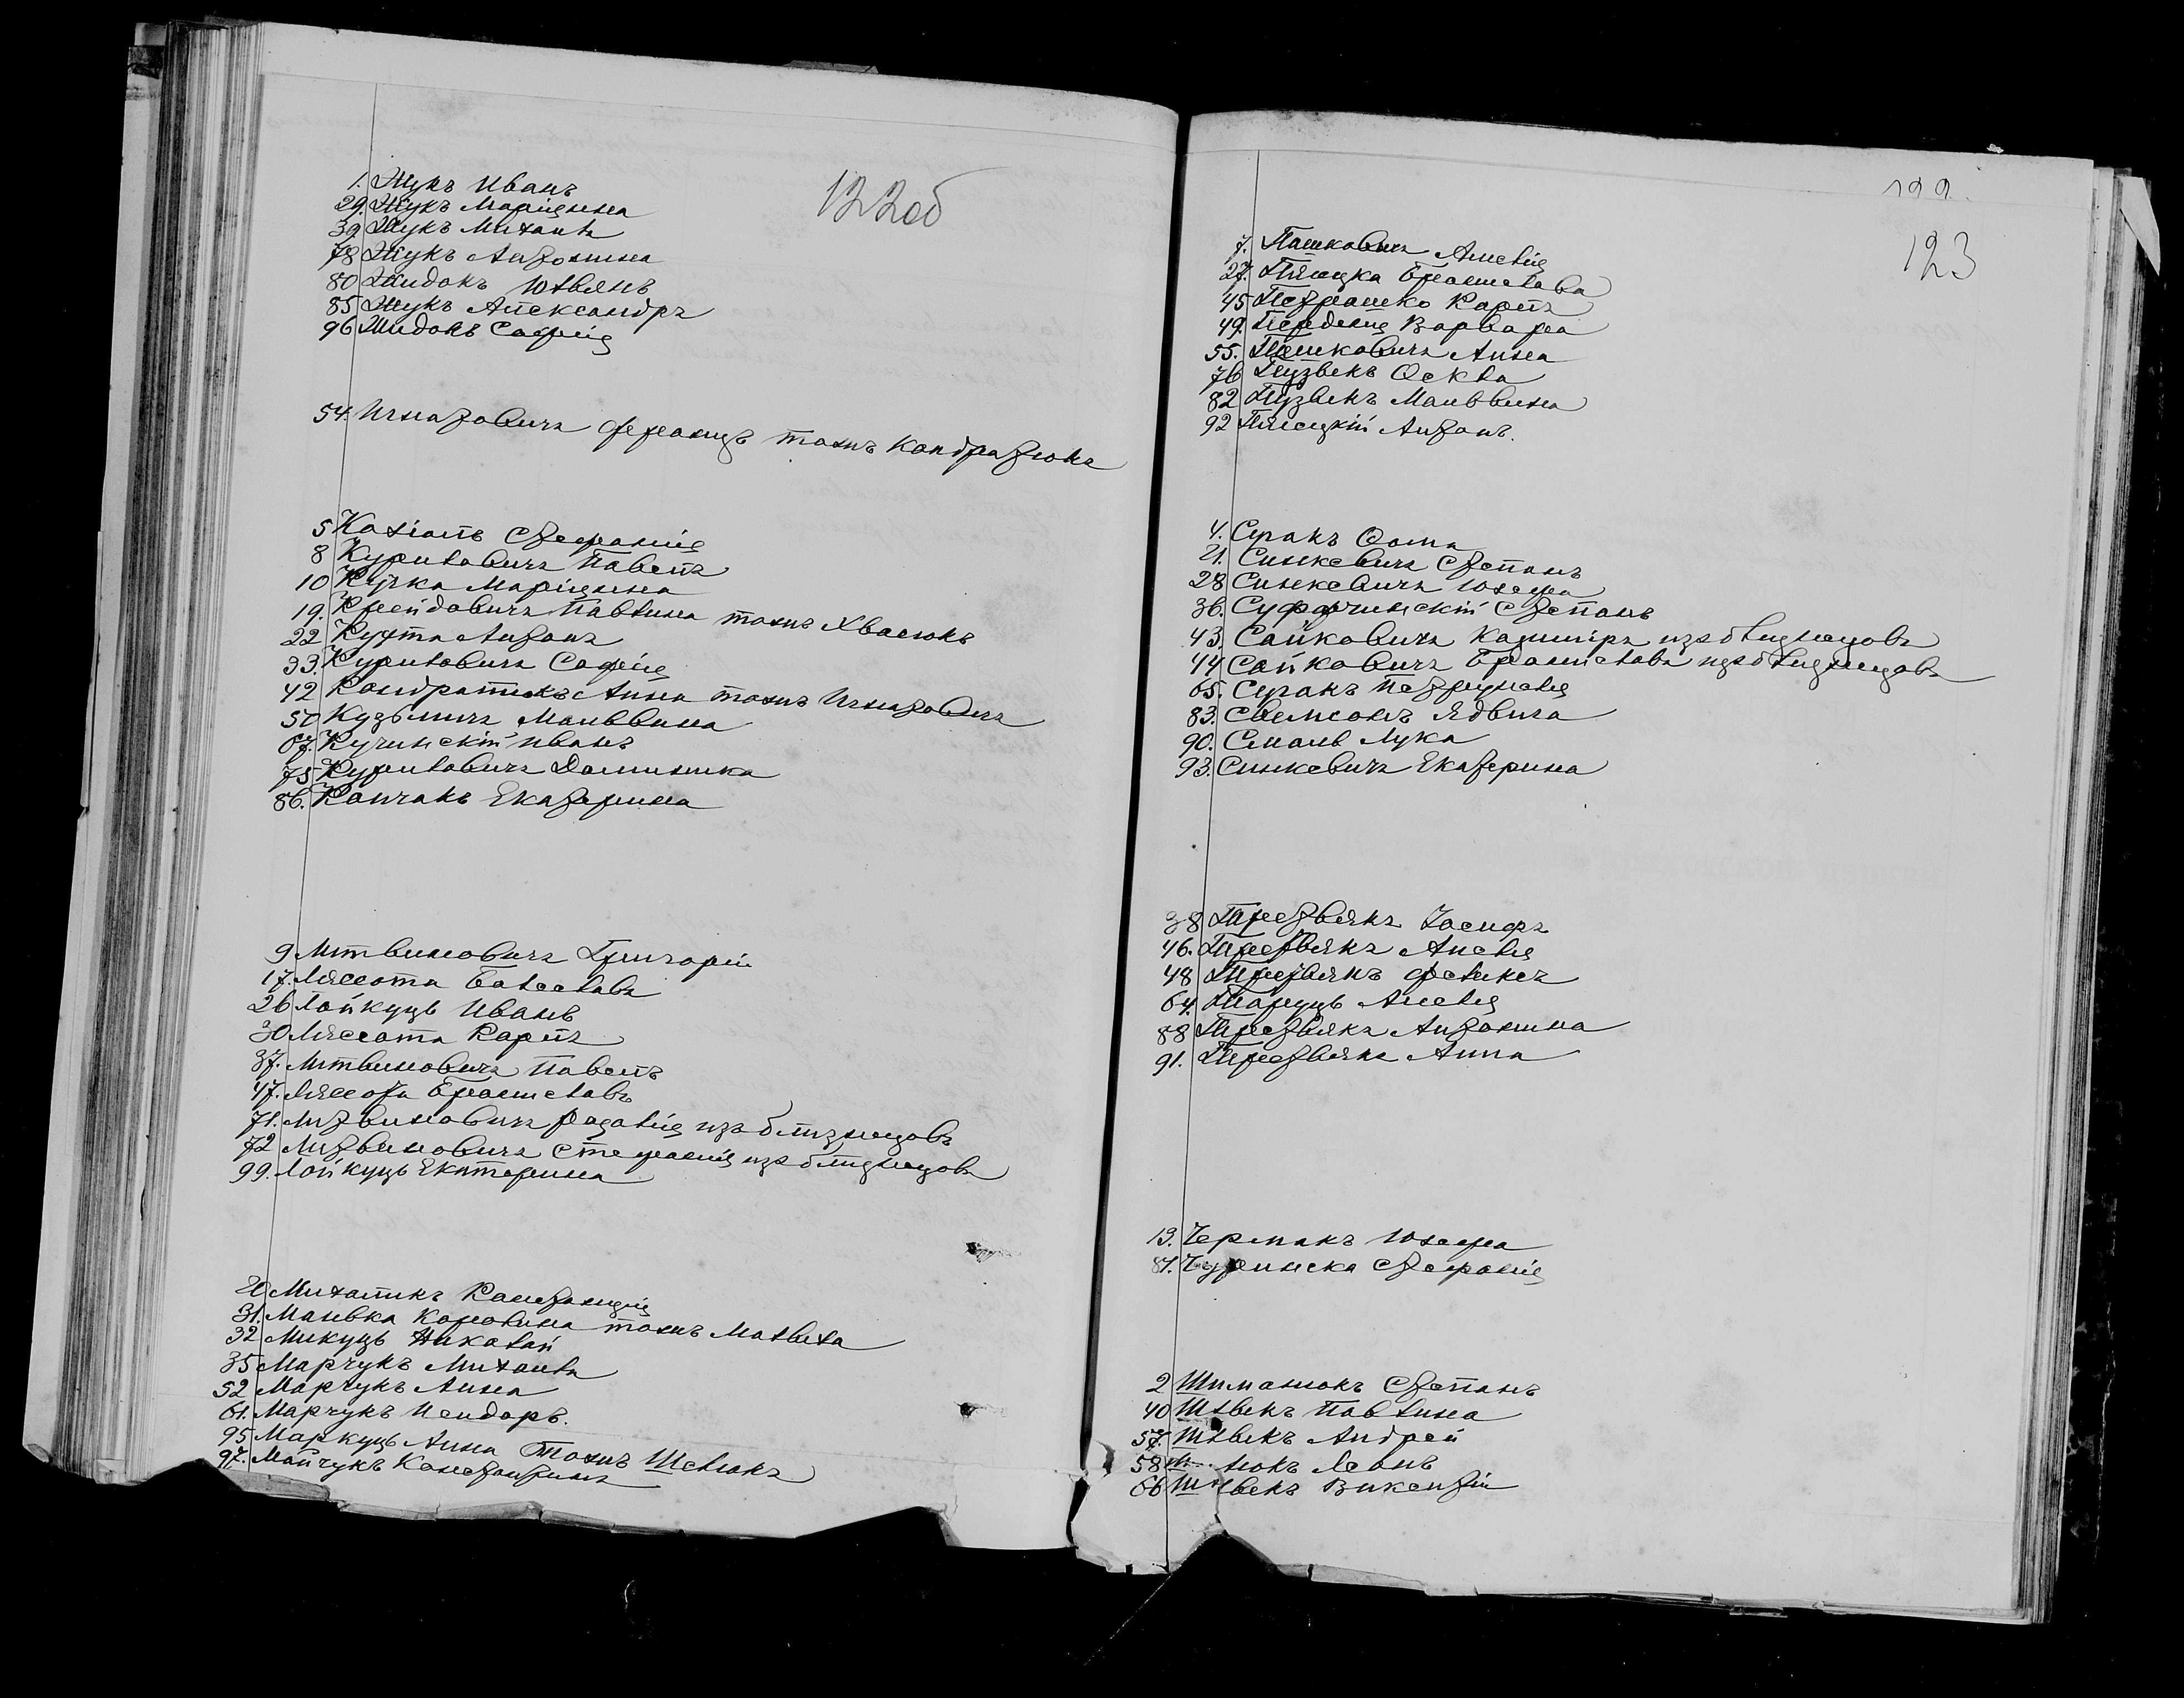 122об
1. Жукъ Иванъ
29. Жукъ Марцелина
39 Жукъ Михаилъ
78 Жукъ Антонина
80 Жидокъ Юльянъ
85 Жукъ Александръ
96 Жидокъ Софія
54. Игнатовичъ Францъ тожъ Кондратюкъ
5 Стефанія
8 Куриловичъ Павелъ
10 Кучка Марцелина
19. Крейдовичъ Павлина тожъ Хвасюкъ
22 Кухта Антонъ
33. Куриловичъ Софія
42 Кондратюкъ Анна тожъ Игнатовичъ
50 Кузьмичъ Мальвина
67. Кучинскій Иванъ
75 Куриловичъ Доминика
86. Колчакъ Екатерина
9 Литвиновичъ Григорій
17. Лясота Болеславъ
26 Лойкуцъ Иванъ
30 Лясота Карпъ
37. Литвиновичъ Павелъ
47. Лясота Брониславъ
71. Литвиновичъ Розалія изъ близнецовъ
72 Литвиновичъ Стефанія изъ близнецовъ
99. Лойкуцъ Екатерина
20 Михалюкъ Констанція
31. Каролина тожъ
32 Микуцъ Николай
35 Марчукъ Михаилъ
52 Марчукъ Анна
61. Марчукъ Исидоръ.
95 Маркуцъ Анна тожъ Шелюкъ
97. Майчукъ Константинъ
122.
123
7. Пашковичъ Амелія
27. Бронислава
45 Петрашко Карпъ
49. Варвара
55. Пашковичъ Анна
76 Пузвекъ Оекла
82 Пузвекъ Мальвина
92 Пясецкій Антонъ.
4. Сракъ Оома
21. Синкевичъ Степанъ
28 Синкевичъ Юзефа
36. Степанъ
43. Сайковичъ Казиміръ изъ близнецовъ
44 Сайковичъ Брониславъ изъ близнецовъ
65. Сракъ Петрунеля
83. Ядвига
90. Смаль Лука
93. Синкевичъ Екатерина
38 Третьякъ Іосифъ
46. Третьякъ Амелія
48 Третьякъ Феликсъ
64. Амелія
88 Третьякъ Антонина
91. Третьякъ Анна
13. Чермакъ Юзефа
81. Стефанія
2 Шиманюкъ Степанъ
40 Шлвекъ Павлина
57. Шлвекъ Андрей
58 Леонъ
66 Шлвекъ Викентій